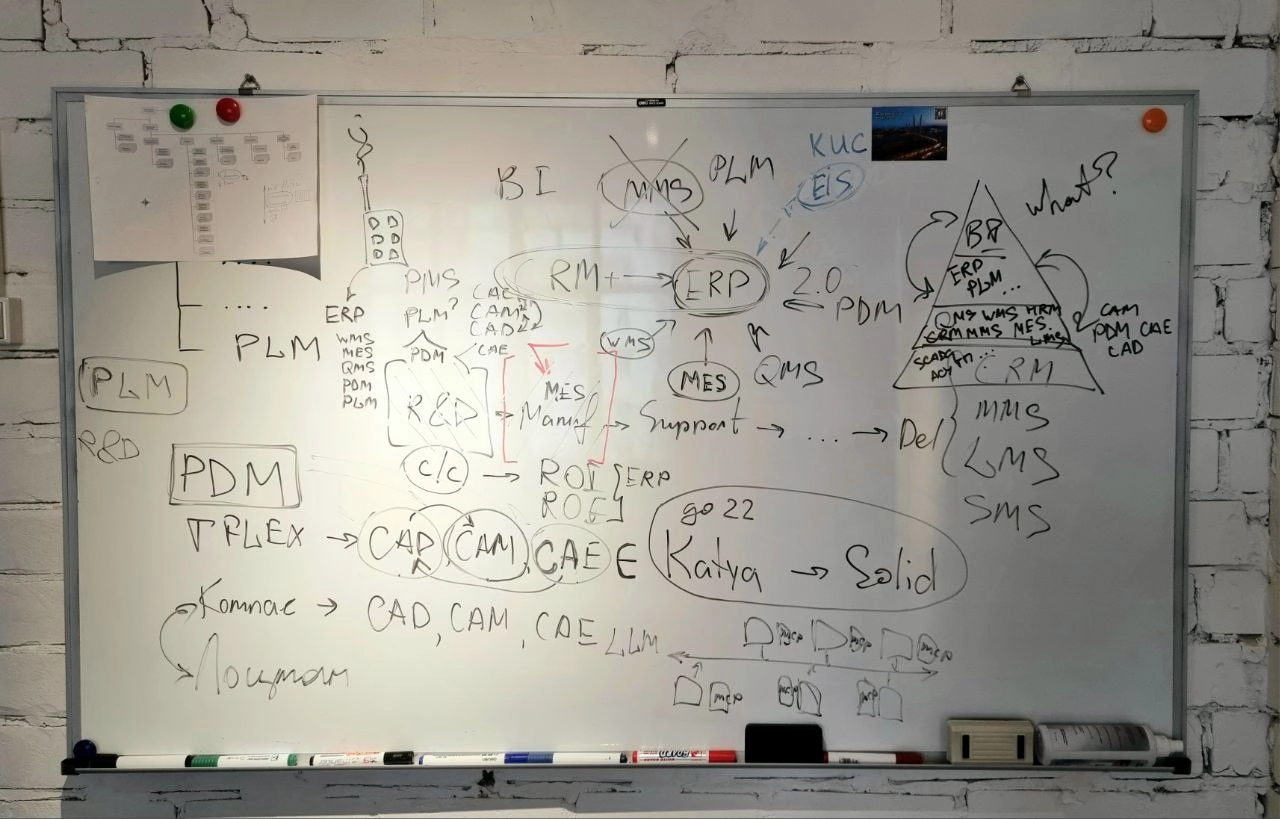 KUC
EiS
BI
MMS
PLM
what?
RM+
ERP
2.0
PDM
QMS
WMS
MES
ERP
PLM...
QMS WMS HRM
CRM MMS MES
LMS
CRM
CAM
PDM CAE
CAD
MMS
LMS
SMS
....
PLM
PLM
R&D
ERP
WMS
MES
QMS
PDM
PLM
PLM?
PDM
CAE
CAM
CAD
CAE
R&D
MES
Manuf
Support
....
Del
c/c
ROI
ERP
PDM
TFLEX
CAD
CAM
CAE
E
go 22
Katya
Solid
Компас
CAD, CAM, CAE
LLM
Лоцман
mcp
mcp
mcp
mcp
mcp
mcp